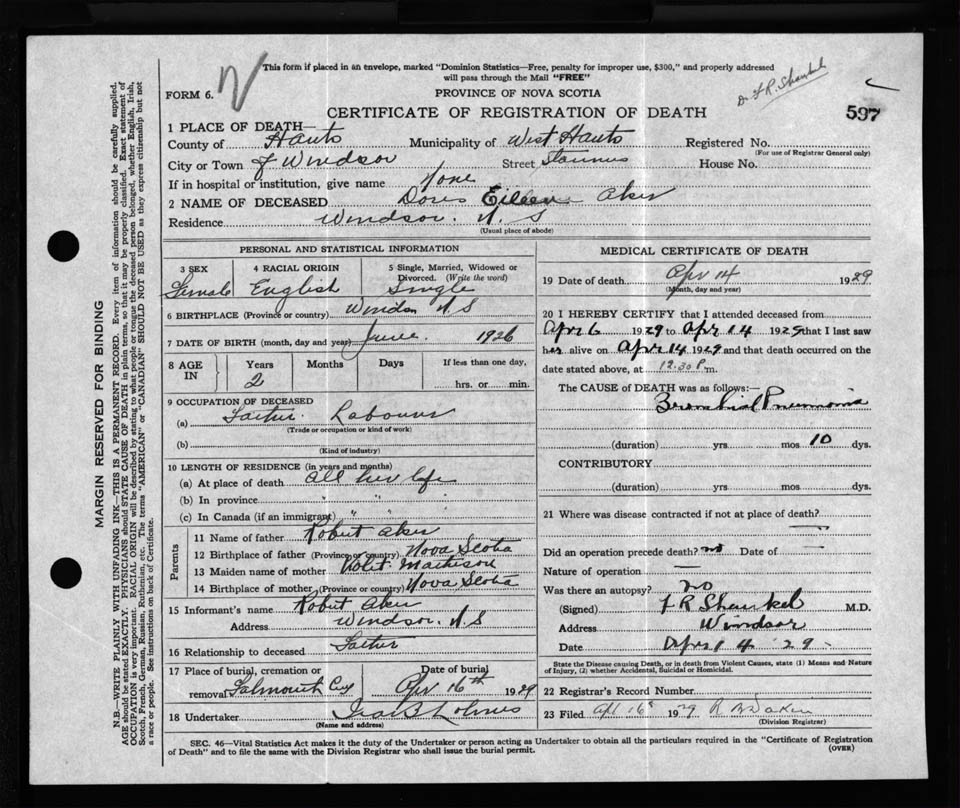 This form if placed in an envelope, marked "Dominion Statistics—Free, penalty for improper use, $300," and properly addressed
will pass through the Mail "FREE"
Dr F R Shankel
FORM 6.
PROVINCE OF NOVA SCOTIA
597
CERTIFICATE OF REGISTRATION OF DEATH
1 PLACE OF DEATH—
County of Hants Municipality of West Hants Registered No.
(For use of Registrar General only)
City or Town of Windsor Street House No.
If in hospital or institution, give name None
2 NAME OF DECEASED Doris Eileen Aker
Residence Windsor. N. S
(Usual place of abode)
PERSONAL AND STATISTICAL INFORMATION
3 SEX
Female
4 RACIAL ORIGIN
English
5 Single, Married, Widowed or
Divorced. (Write the word)
Single
6 BIRTHPLACE (Province or country) Windsor N.S
7 DATE OF BIRTH (month, day and year) June. 1926
8 AGE IN
Years
2
Months
Days
If less than one day,
hrs. or min.
9 OCCUPATION OF DECEASED
(a) Father Labourer
(Trade or occupation or kind of work)
(b)
(Kind of industry)
10 LENGTH OF RESIDENCE (in years and months)
(a) At place of death all her life
(b) In province " " "
(c) In Canada (if an immigrant) " " "
Parents
11 Name of father Robert Aker
12 Birthplace of father (Province or country) Nova Scotia
13 Maiden name of mother Violet
14 Birthplace of mother (Province or country) Nova Scotia
15 Informant's name Robert Aker
Address Windsor. N.S
16 Relationship to deceased Father
17 Place of burial, cremation or
removal Falmouth Cem
Date of burial
Apr 16th 1929
18 Undertaker Holmes
(Name and address)
MEDICAL CERTIFICATE OF DEATH
19 Date of death Apr 14 1929
(Month, day and year)
20 I HEREBY CERTIFY that I attended deceased from
Apr 6 1929 to Apr 14 1929 that I last saw
her alive on Apr 14 1929 and that death occurred on the
date stated above, at 12.30 P.m.
The CAUSE OF DEATH was as follows:—
Bronchial Pneumonia
(duration) yrs mos 10 dys.
CONTRIBUTORY
(duration) yrs mos dys.
21 Where was disease contracted if not at place of death? —
Did an operation precede death? no Date of —
Nature of operation —
Was there an autopsy? no
(Signed) F R Shankel M.D.
Address Windsor
Date Apr 14 29
State the Disease causing Death, or in death from Violent Causes, state (1) Means and Nature
of Injury, (2) whether Accidental, Suicidal or Homicidal.
22 Registrar's Record Number
23 Filed Apl 16th 1929
(Division Registrar)
SEC. 46—Vital Statistics Act makes it the duty of the Undertaker or person acting as Undertaker to obtain all the particulars required in the "Certificate of Registration
of Death" and to file the same with the Division Registrar who shall issue the burial permit.
(OVER)
MARGIN RESERVED FOR BINDING
N.B.—WRITE PLAINLY WITH UNFADING INK—THIS IS A PERMANENT RECORD. Every item of information should be carefully supplied.
AGE should be stated EXACTLY. PHYSICIANS should STATE CAUSE OF DEATH in plain terms, so that it may be properly classified. Exact statement of
OCCUPATION is very important. RACIAL ORIGIN will be described by stating to what people or tongue the deceased person belonged, whether English, Irish,
Scotch, French, German, Russian, Ruthenian, etc. The terms "AMERICAN" or "CANADIAN" SHOULD NOT BE USED as they express citizenship but not
a race or people. See instructions on back of Certificate.